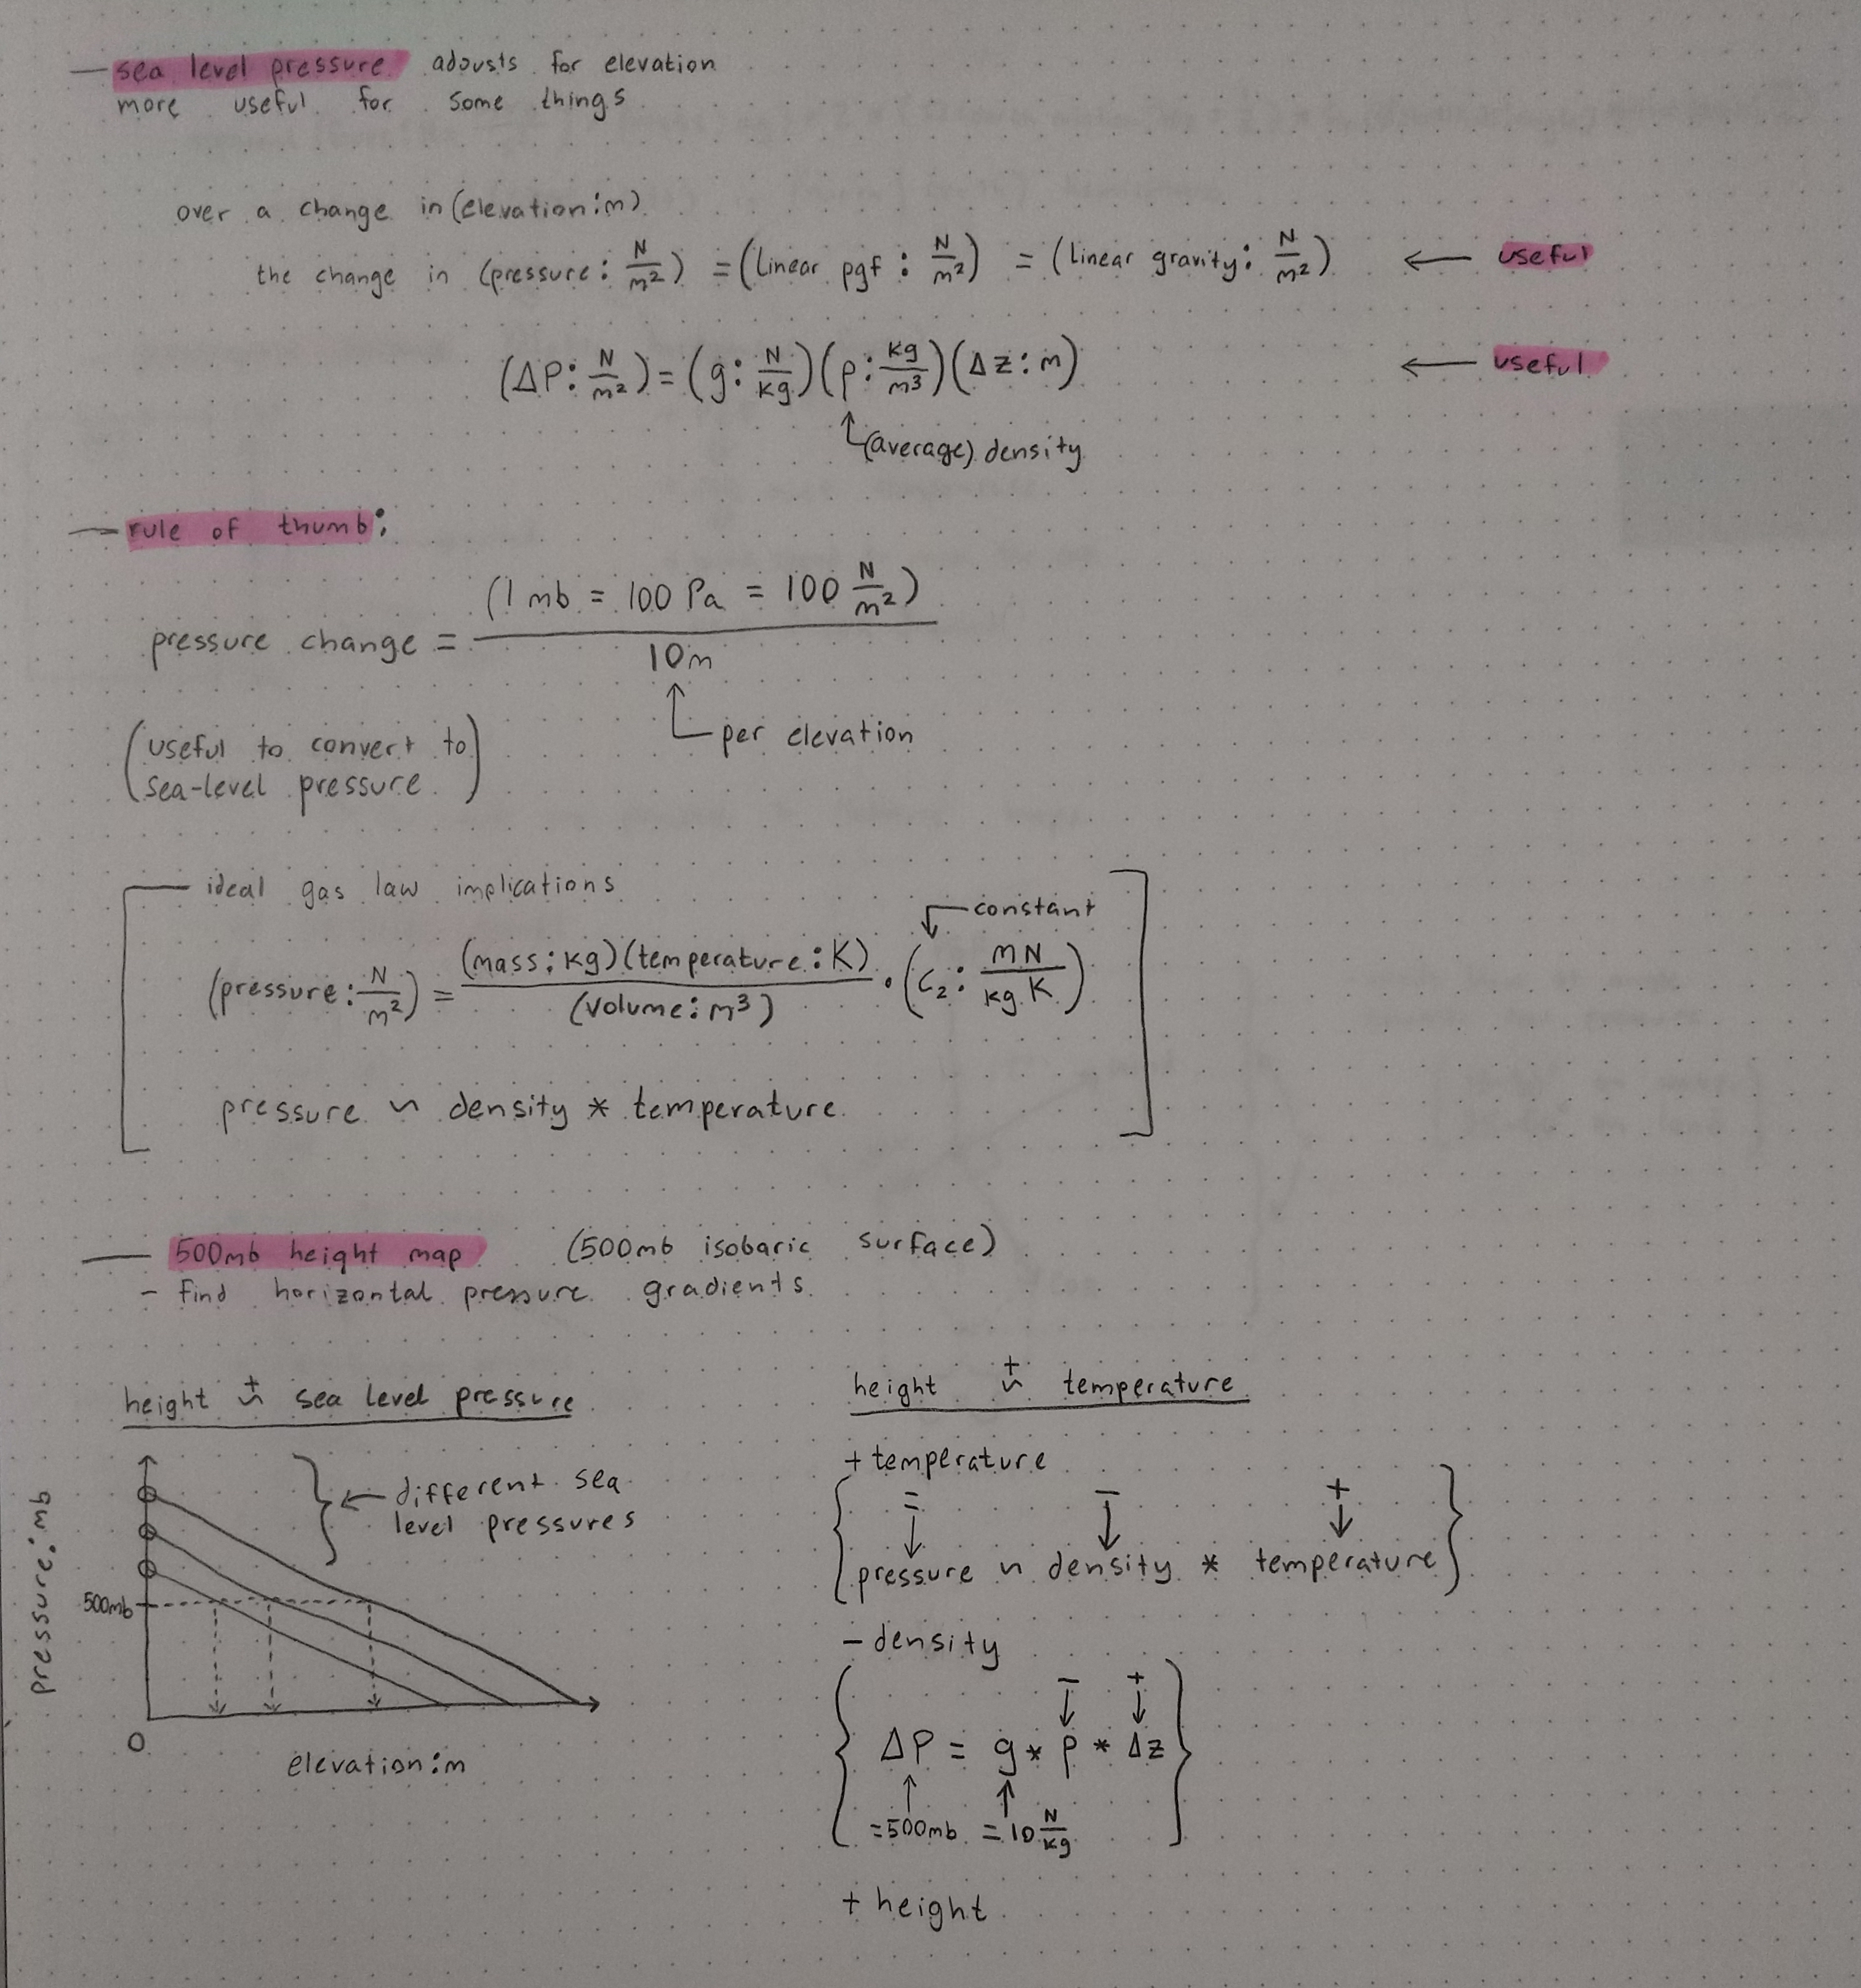 — sea level pressure adjusts for elevation
more useful for some things
over a change in (elevation:m)
the change in (pressure: N/m²) = (linear pgf: N/m²) = (linear gravity: N/m²) ← useful
(ΔP: N/m²) = (g: N/kg)(ρ: kg/m³)(Δz: m) ← useful
(average) density
— rule of thumb:
pressure change = (1 mb = 100 Pa = 100 N/m²) / 10m
per elevation
(useful to convert to
sea-level pressure)
ideal gas law implications
constant
(pressure: N/m²) = (mass: kg)(temperature: K) / (volume: m³) · (C₂: mN / kg K)
pressure ~ density * temperature
— 500mb height map (500mb isobaric surface)
- find horizontal pressure gradients
height ~⁺ sea level pressure
different sea
level pressures
pressure: mb
500mb
0
elevation: m
height ~⁺ temperature
+ temperature
= − +
↓ ↓ ↓
pressure ~ density * temperature
− density
− +
↓ ↓
ΔP = g * ρ * Δz
↑ ↑
=500mb =10 N/kg
+ height